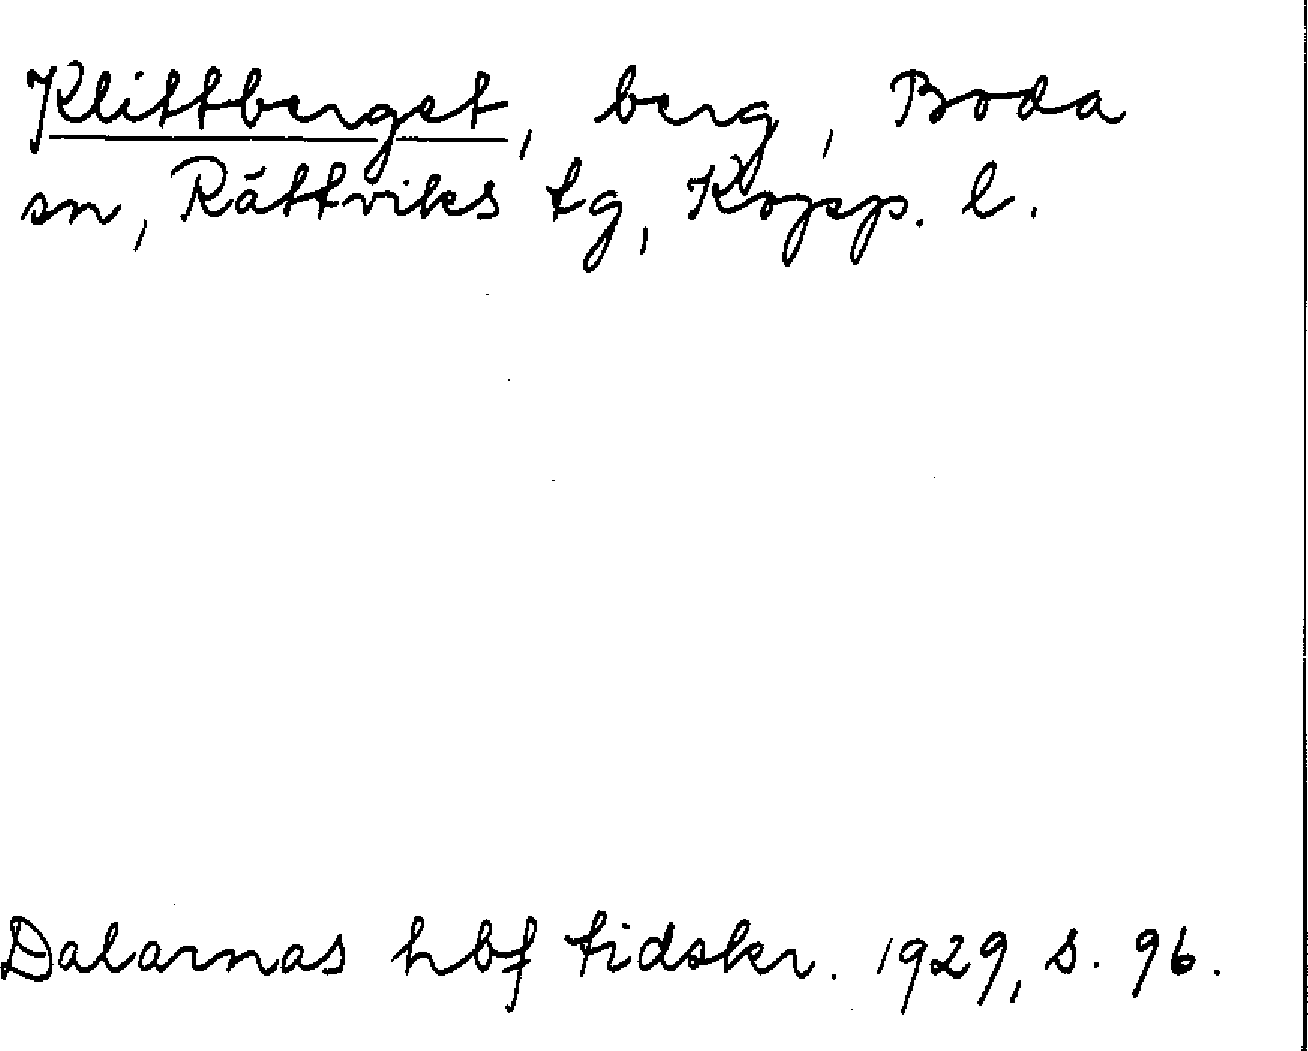 Klittberget, berg, Boda
sn, Rättviks tg, Kopp. l.
Dalarnas hbf tidskr. 1929, s. 96.